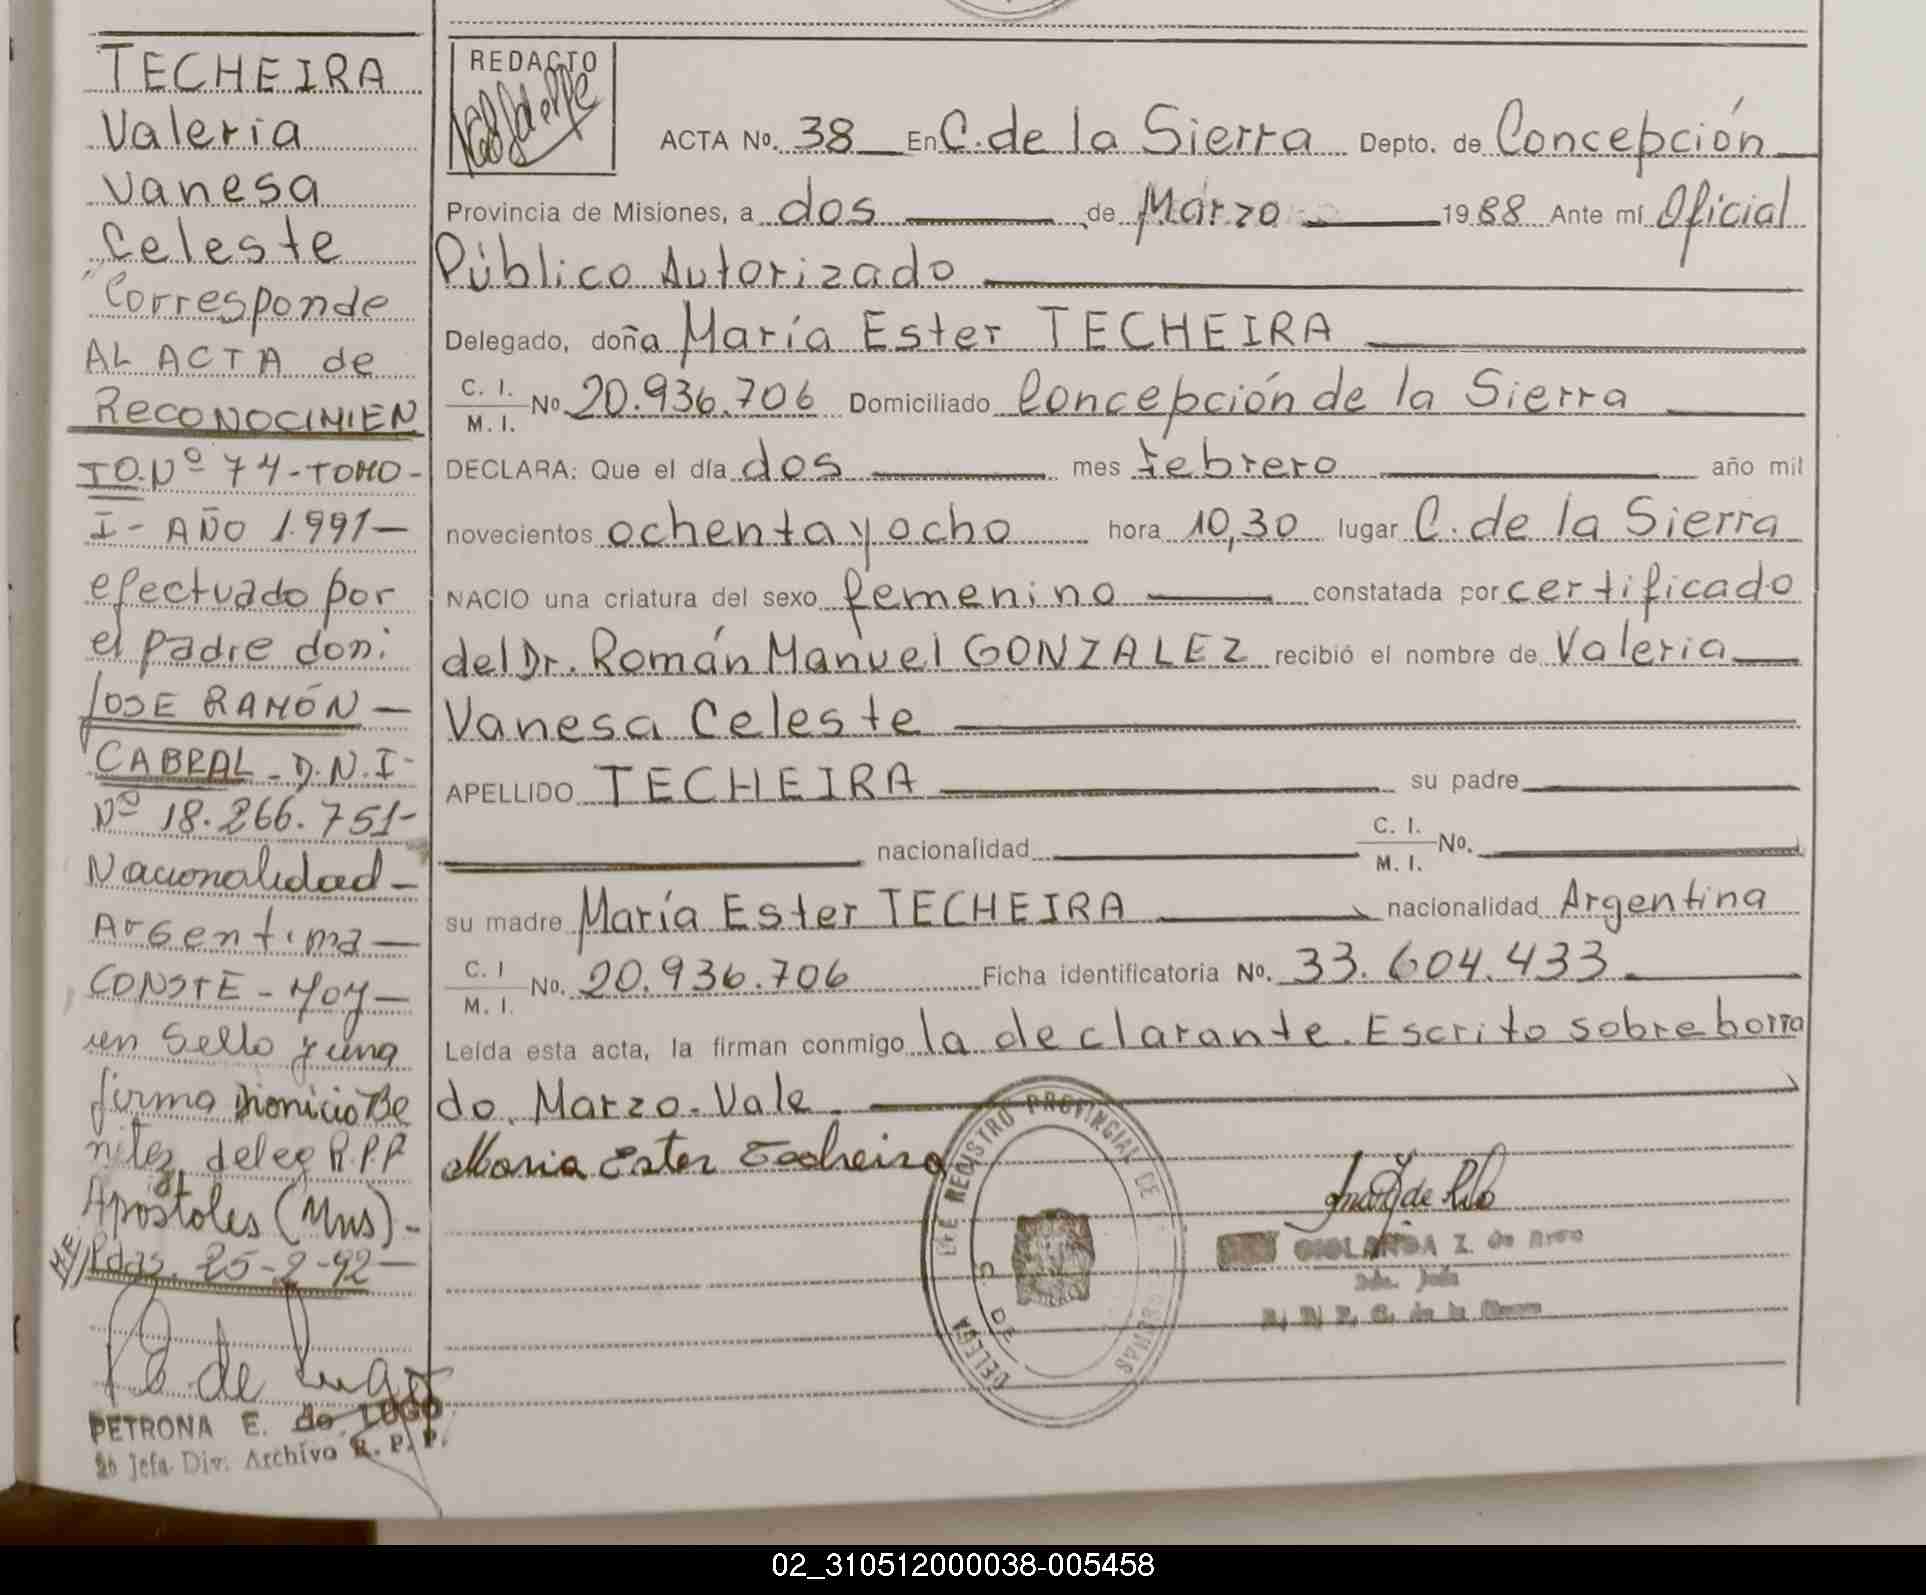 TECHEIRA
Valeria
Vanesa
Celeste
Corresponde
AL ACTA de
RECONOCIMIEN
TO.Nº 74-TOMO-
I- AÑO 1.991-
efectuado por
el padre don:
JOSE RAMÓN -
CABRAL - D.N.I-
Nº 18.266.751-
Nacionalidad -
Argentina -
CONSTE - Hoy -
un sello y una
firma Dionicio Be
nitez deleg R.P.P
Apóstoles (Mns).-
Pdas. 25-2-92-
PETRONA E. de LUGO
Jefa Div. Archivo R. P. P.
REDACTO
ACTA No. 38 En C. de la Sierra Depto. de Concepción
Provincia de Misiones, a dos de Marzo 1988 Ante mí Oficial
Público Autorizado
Delegado, doña María Ester TECHEIRA
C. I.
M. I. No 20.936.706 Domiciliado Concepción de la Sierra
DECLARA: Que el día dos mes febrero año mil
novecientos ochenta y ocho hora 10,30 lugar C. de la Sierra
NACIO una criatura del sexo femenino constatada por certificado
del Dr. Román Manuel GONZALEZ recibió el nombre de Valeria
Vanesa Celeste
APELLIDO TECHEIRA su padre
nacionalidad C. I.
M. I. No.
su madre María Ester TECHEIRA nacionalidad Argentina
C. I
M. I. No. 20.936.706 Ficha identificatoria No. 33.604.433
Leída esta acta, la firman conmigo la declarante. Escrito sobre borra
do. Marzo. Vale.
Maria Ester Techeira
REGISTRO PROVINCIAL DE
DELEGA
02_310512000038-005458